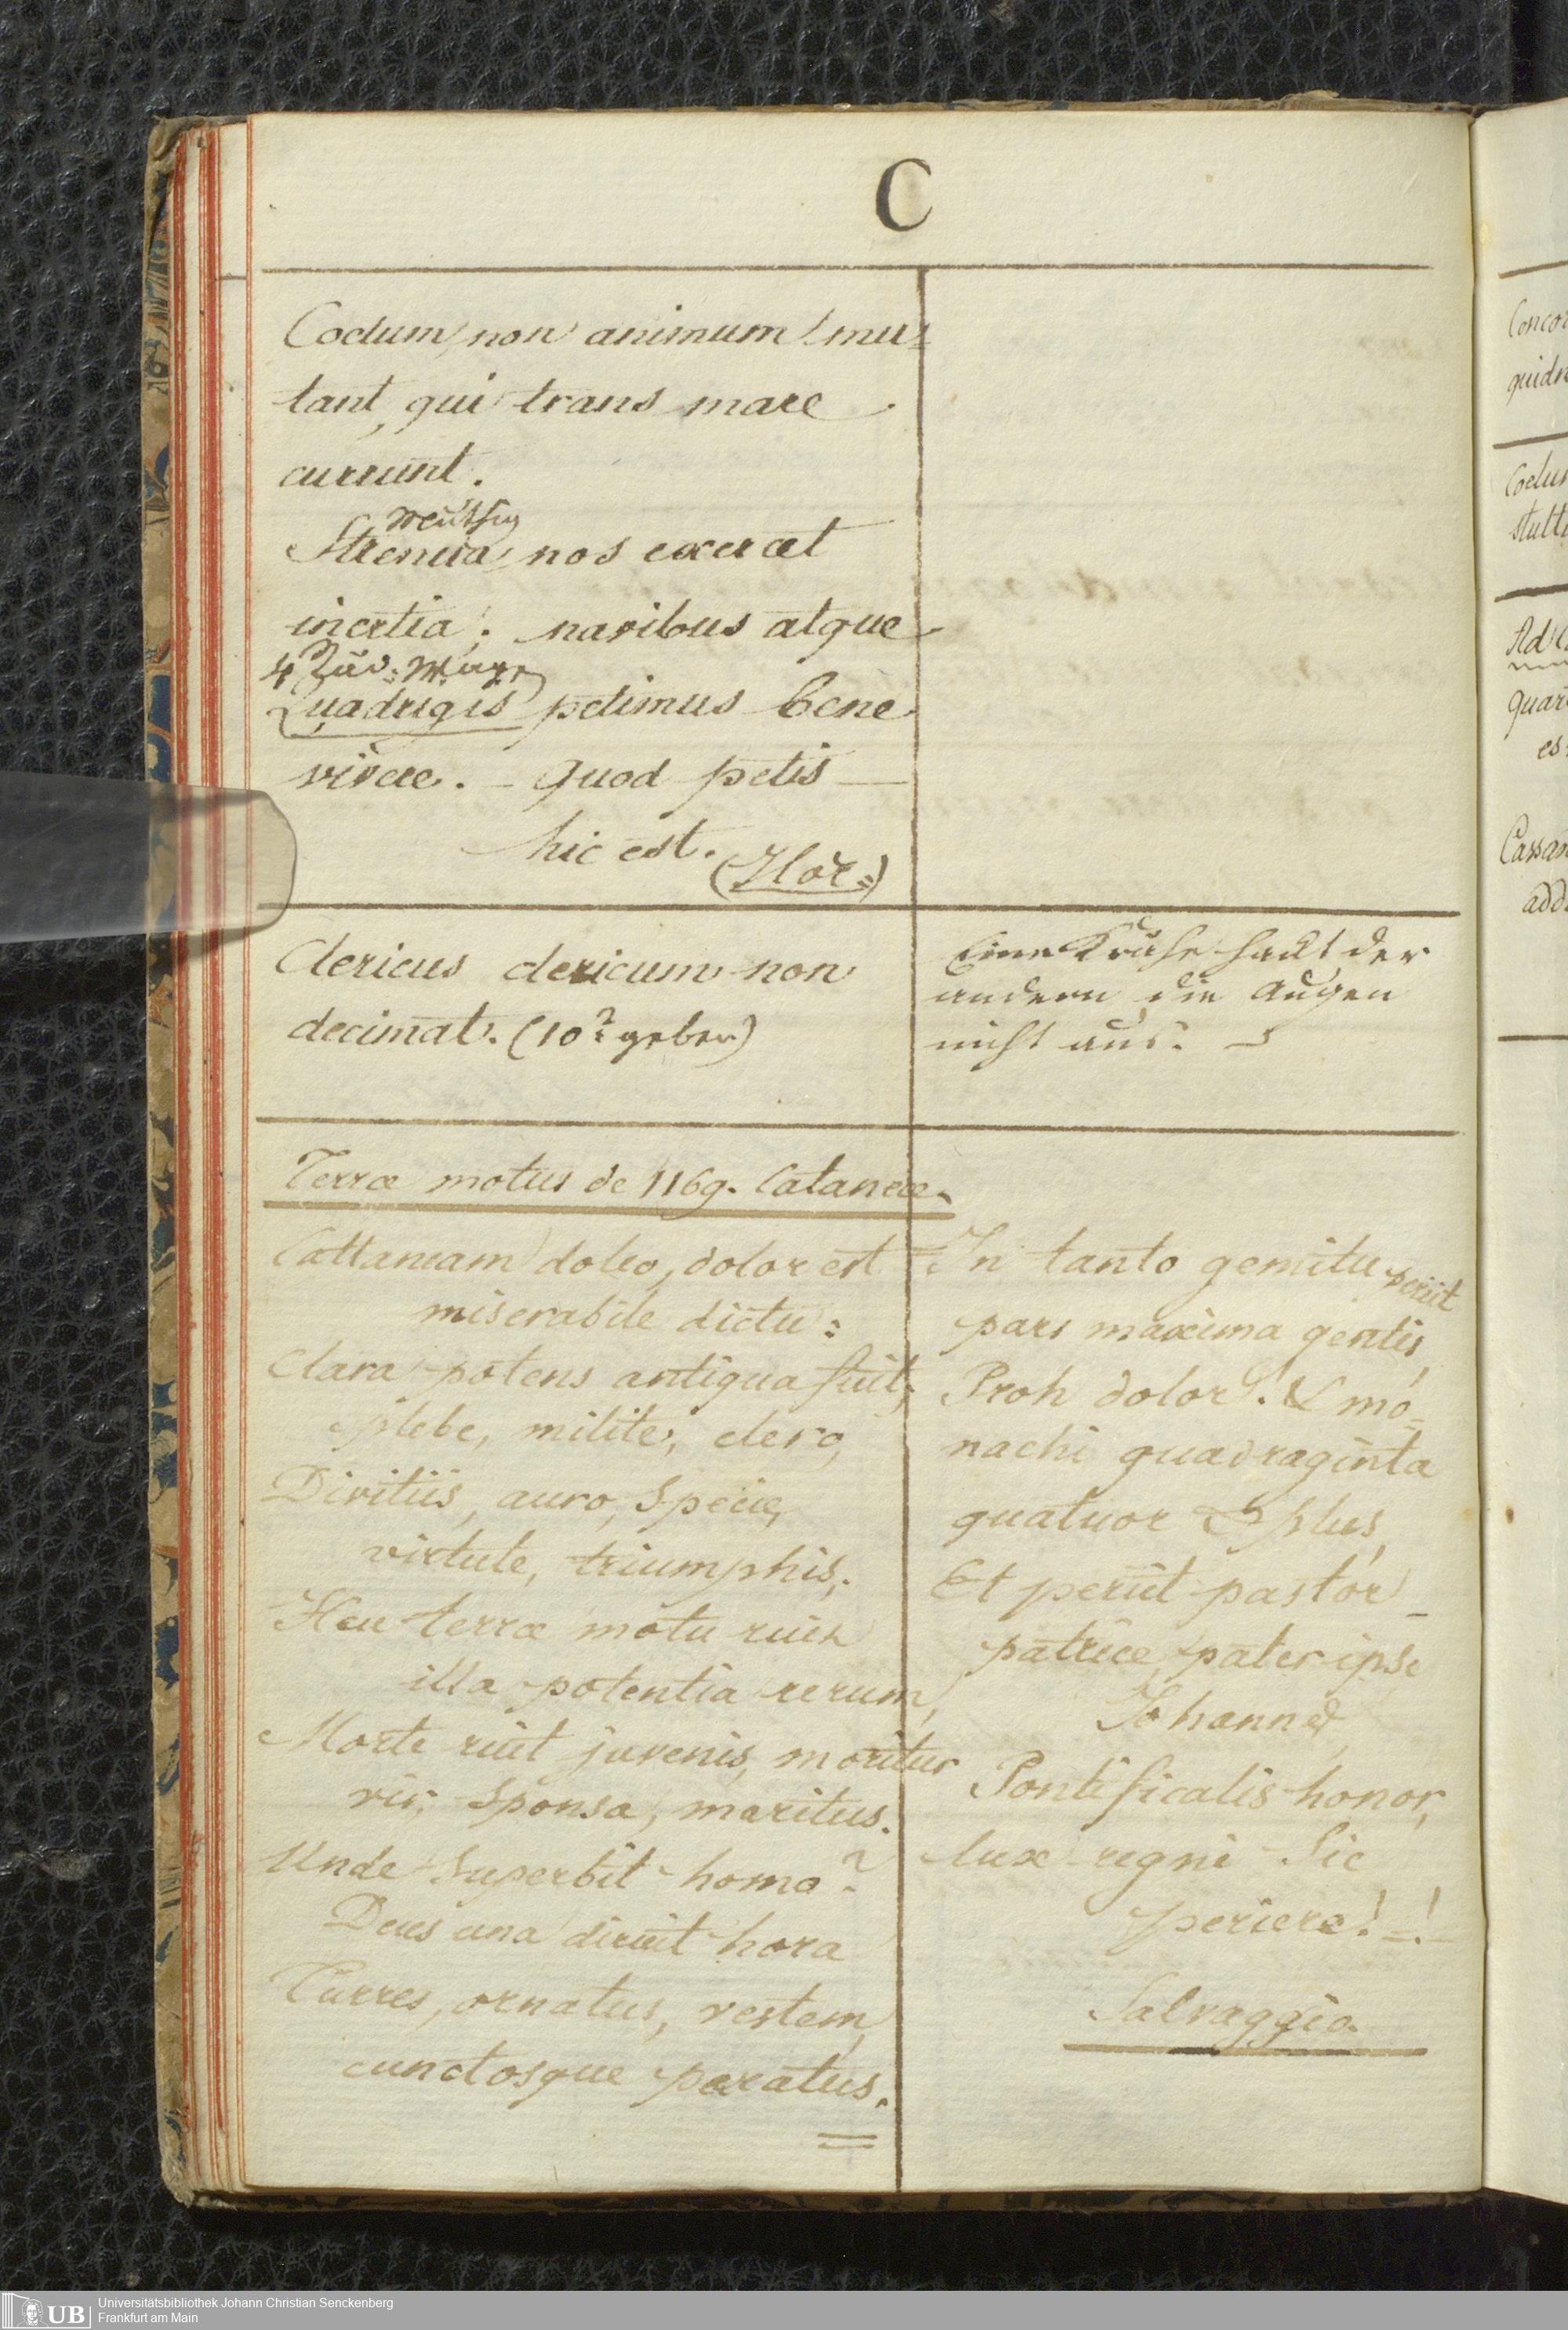 C
Coelum, non animum mu-
tant, qui trans mare
currunt.
Strenua nos exercet
inertia; navibus atque
4 Räd: Wage
Quadrigis petimus bene
vivere. - Quod petis -
hic est. (Hor.)
Clericus clericum non
decimat. (10? geben)
Eine Krähe hackt der
andern die Augen
nicht aus.
Terræ motus de 1169. Cataneæ.
Cattaneam doleo, dolor est
miserabile dictu:
Clara potens antiqua fuit;
plebe, milite, clero,
Divitiis, auro, specie,
virtute, triumphis,
Heu terræ motu ruit
illa potentia rerum,
Morte ruit juvenis, moritur
vir, sponsa, maritus.
Unde superbit homo?
Deus una diruit hora
Turres, ornatus, vestem,
cunctosque paratus.
=
In tanto gemitu periit
pars maxima gentis,
Proh dolor! & mo-
nachi quadraginta
quatuor & plus,
Et periit pastor
patriæ, pater ipse
Johannes,
Pontificalis honor,
lux regni sic
periere! - ! -
Salvaggio.
Concor
quidn
Coelu
stult
Ad C
quar
es
Cassan
add
UB
Universitätsbibliothek Johann Christian Senckenberg
Frankfurt am Main